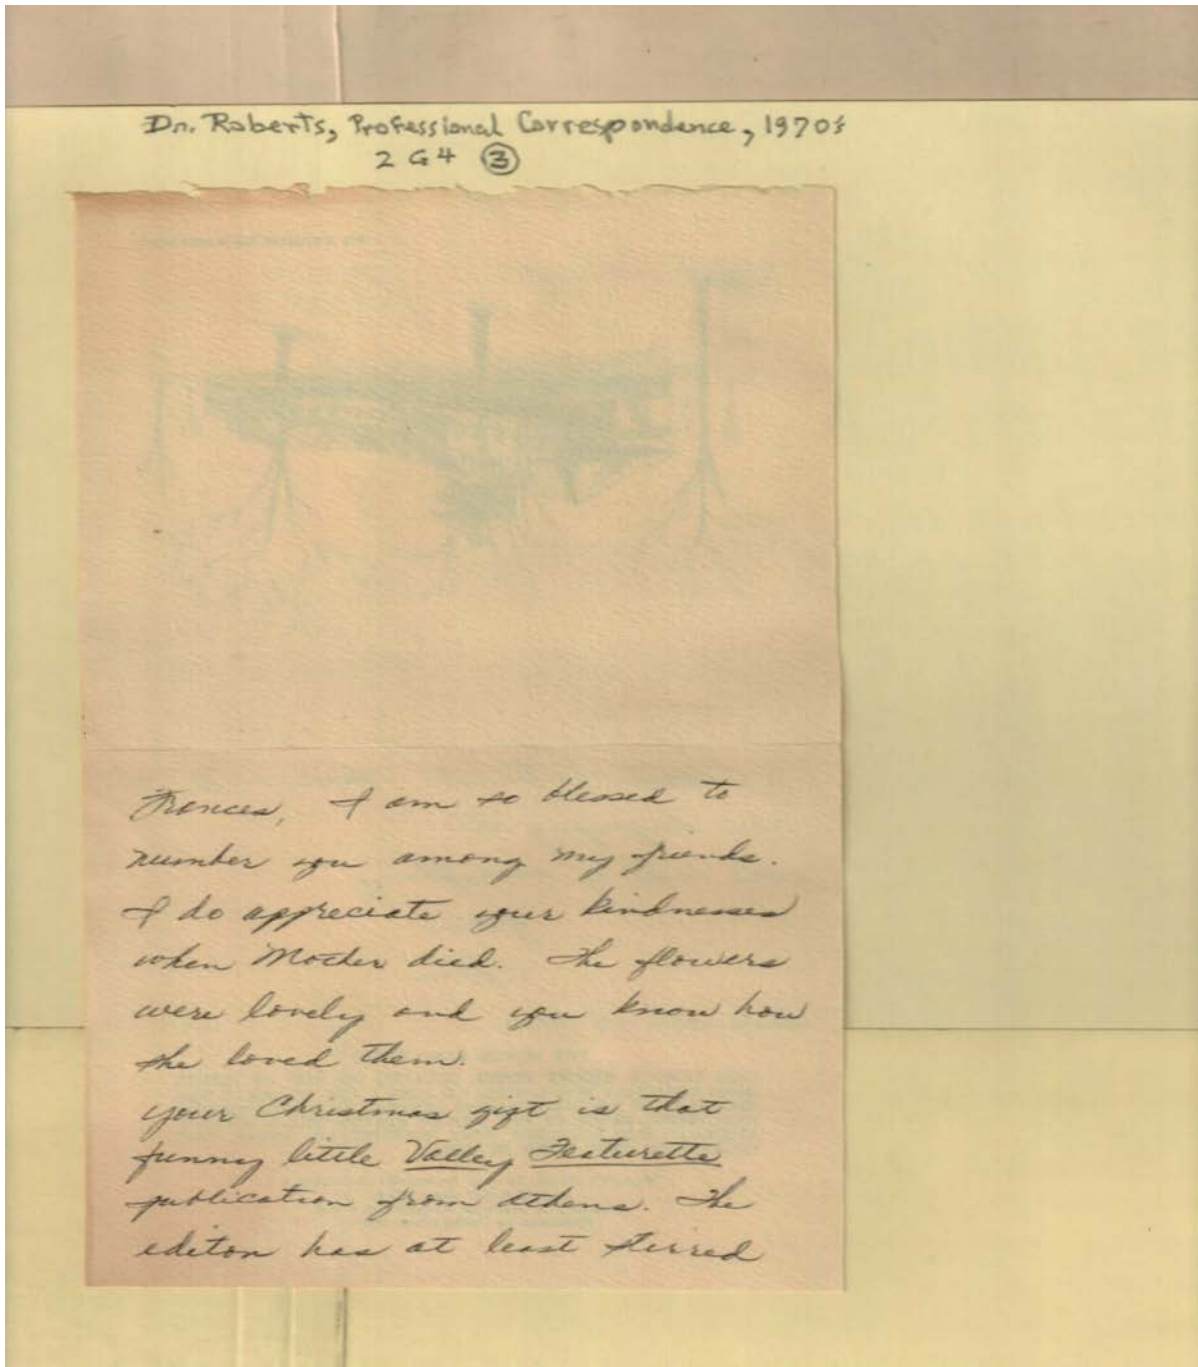 Dr. Roberts, Professional Correspondence, 1970's
2 G4 ③
Frances, I am so blessed to
number you among my friends.
I do appreciate your kindnesses
when Mother died. The flowers
were lovely and you know how
she loved them.
Your Christmas gift is that
funny little Valley Featurette
publication from Athens. The
editor has at least stirred